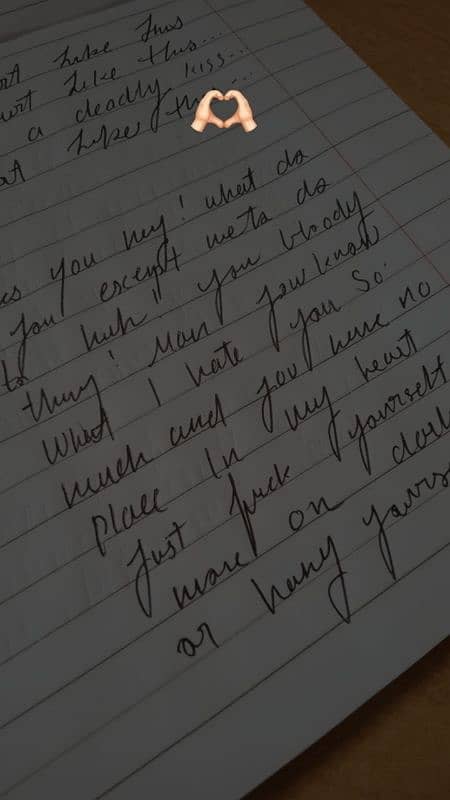 like this
hurt like this...
a deadly kiss...
like this...
you hey! what do
you except me to do
huh! you bloody
thing! Man you know
what I hate you so
much and you have no
place in my heart
Just fuck yourself
more on
or hang yours